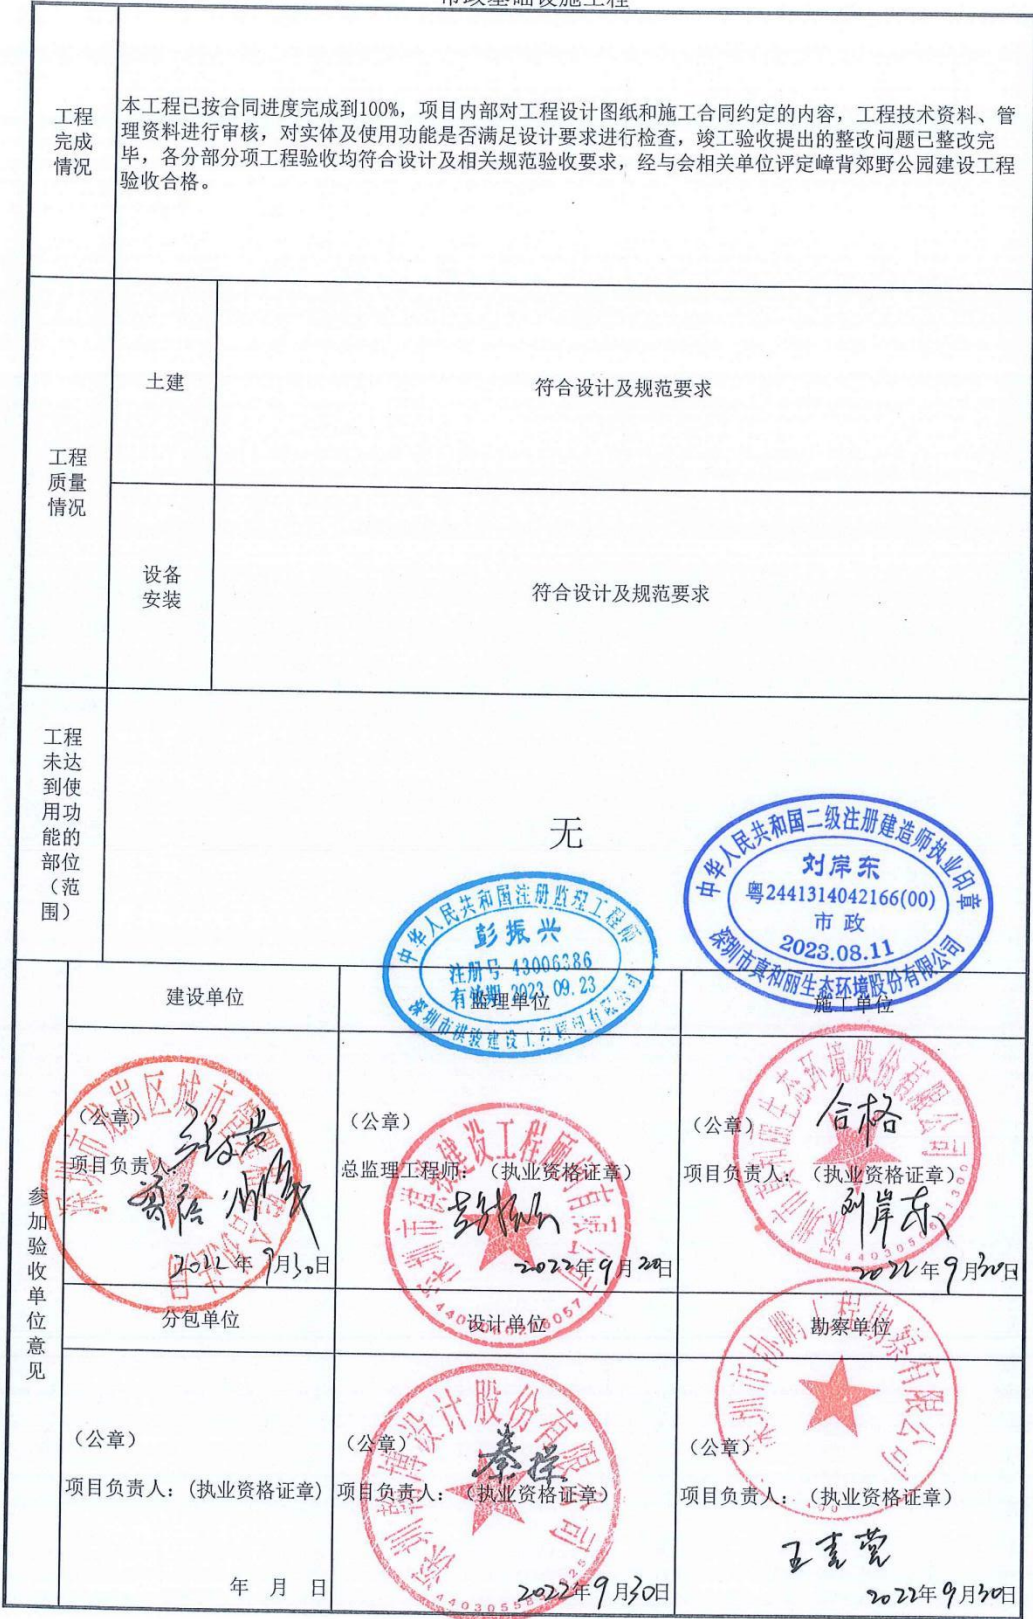 市政基础设施工程
工程
完成
情况
本工程已按合同进度完成到100%，项目内部对工程设计图纸和施工合同约定的内容，工程技术资料、管
理资料进行审核，对实体及使用功能是否满足设计要求进行检查，竣工验收提出的整改问题已整改完
毕，各分部分项工程验收均符合设计及相关规范验收要求，经与会相关单位评定嶂背郊野公园建设工程
验收合格。
工程
质量
情况
土建
符合设计及规范要求
设备
安装
符合设计及规范要求
工程
未达
到使
用功
能的
部位
（范
围）
无
中华人民共和国注册监理工程师
彭振兴
注册号 43006386
有效期 2023.09.23
中华人民共和国二级注册建造师执业印章
刘岸东
粤2441314042166(00)
市政
2023.08.11
深圳市真和丽生态环境股份有限公司
参加验收单位意见
建设单位
监理单位
施工单位
（公章）
项目负责人：
2022年9月30日
（公章）
总监理工程师：（执业资格证章）
彭振兴
2022年9月20日
（公章）
合格
项目负责人：（执业资格证章）
刘岸东
深圳市真和丽生态环境股份有限公司
2022年9月30日
分包单位
设计单位
勘察单位
（公章）
项目负责人：(执业资格证章)
年 月 日
（公章）
秦操
项目负责人：（执业资格证章）
2022年9月30日
深圳市协鹏工程勘察有限公司
（公章）
项目负责人：（执业资格证章）
2022年9月30日